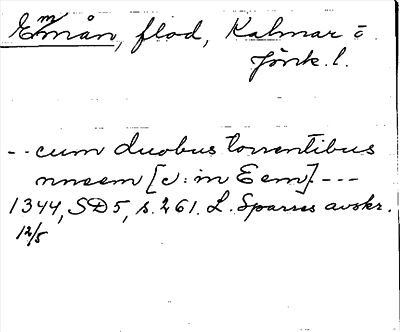 Emmån, flod, Kalmar o.
Jönk. l.
-- cum duobus torrentibus
nneem [ɔ: in Eem]. ---
1344, SD5, s. 261. L. Sparres avskr.
12/5